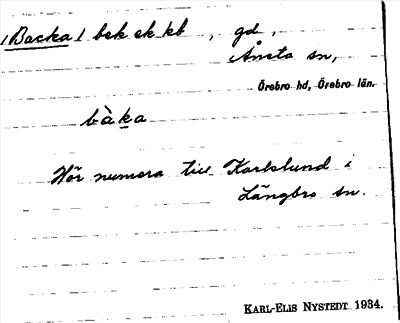 (Backa) bek ek kb, gd,
Ånsta sn,
Örebro hd, Örebro län.
bàka
Hör numera till Karlslund i
Längbro sn.
KARL-ELIS NYSTEDT 1934.